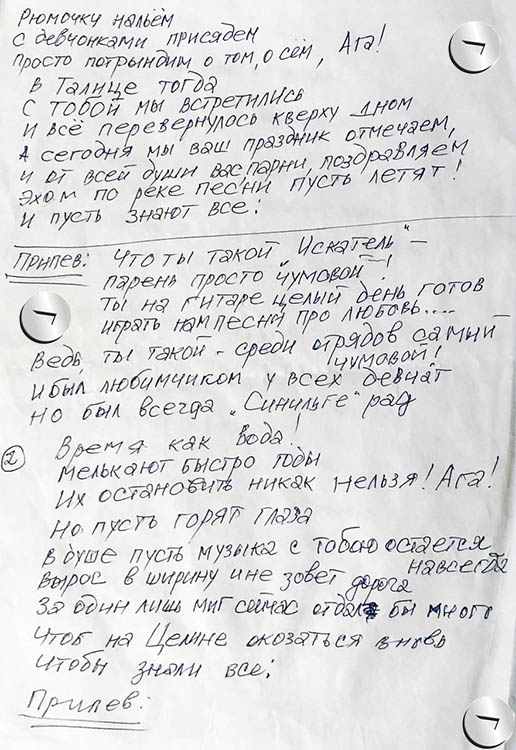 Рюмочку нальём
с девчонками присядем
просто потрындим о том, о сём, Ага!
В Талице тогда
с тобой мы встретились
и всё перевернулось кверху дном
А сегодня мы ваш праздник отмечаем,
и от всей души вас парни, поздравляем
эхом по реке песни пусть летят!
И пусть знают все:
Припев: Что ты такой „Искатель“ –
парень просто чумовой –!
ты на гитаре целый день готов
играть нам песни про любовь....
Ведь ты такой – среди отрядов самый –
чумовой!
И был любимчиком у всех девчат
Но был всегда „Синильге“ рад
2 Время как вода!
мелькают быстро годы
Их остановить никак нельзя! Ага!
Но пусть горят глаза
в душе пусть музыка с тобою остается
навсегда
вырос в ширину и не зовет дорога
За один лишь миг сейчас отдал бы много
Чтоб на Целине оказаться вновь
Чтобы знали все:
Припев: